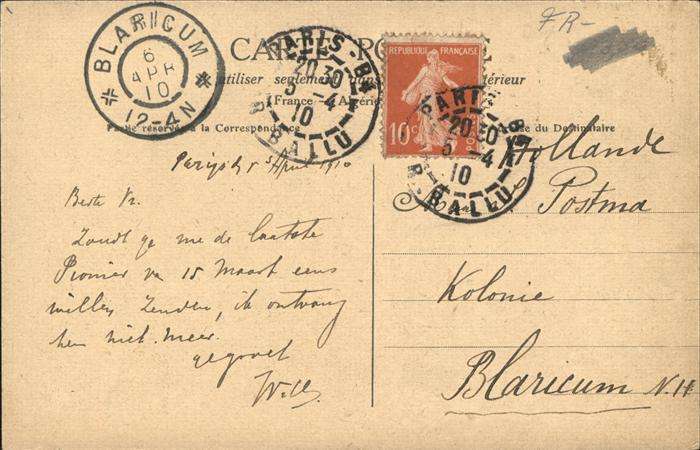 FR-
BLARICUM
6
APR
10
12-4N
CARTE PO
utiliser seulement dans
térieur
(France - Algérie
Partie réservée à la Correspondance
Adresse du Destinataire
PARIS-84
20 30
5 -4
10
R. BALLU
REPUBLIQUE FRANÇAISE
10c
POSTES
PARIS-84
20 30
5 -4
10
R. BALLU
Parijs 5 April 1910
Beste Vr.
Zoudt ge me de laatste
Pionier van 15 Maart eens
willen zenden, ik ontvang
hem niet meer.
gegroet
Hollande
Postma
Kolonie
Blaricum N.H.